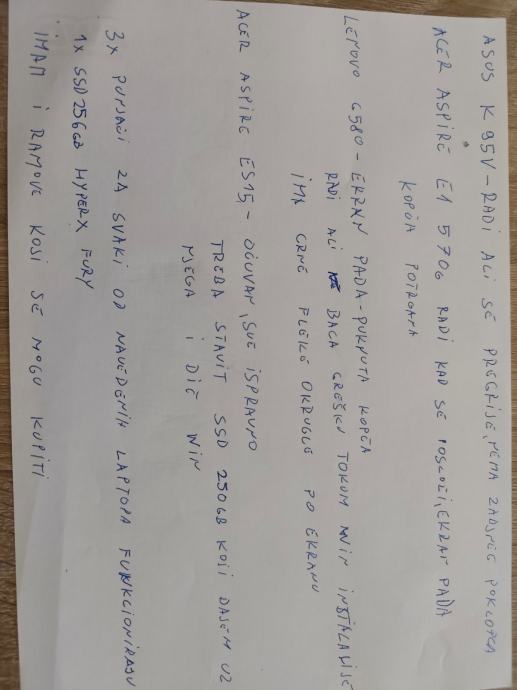 ASUS K95V - RADI ALI SE PREGRIJE, NEMA ZADNJEG POKLOPCA
ACER ASPIRE E1 570G RADI KAD SE POSLOŽI, EKRAN PADA
KOPČA POTRGANA
LENOVO G580 - EKRAN PADA - PUKNUTA KOPČA
RADI ALI BACA GREŠKU TOKOM WIN INSTALACIJE
IMA CRNE FLEKE OKRUGLE PO EKRANU
ACER ASPIRE ES15 - OČUVAN, SVE ISPRAVNO
TREBA STAVIT SSD 250GB KOJI DAJEM UZ
NJEGA I DIĆ WIN
3x PUNJAČI ZA SVAKI OD NAVEDENIH LAPTOPA FUNKCIONIRAJU
1x SSD 256GB HYPERX FURY
IMAM I RAMOVE KOJI SE MOGU KUPITI